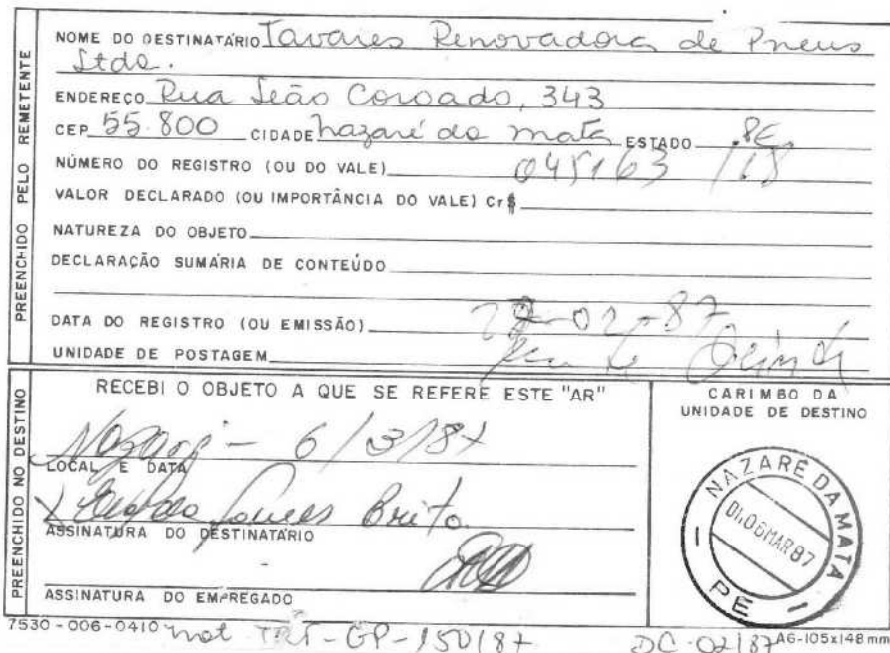 NOME DO DESTINATÁRIO Tavares Renovadora de Pneus
Ltda.
ENDEREÇO Rua Leão Coroado, 343
CEP 55.800 CIDADE Nazaré da Mata ESTADO PE
NÚMERO DO REGISTRO (OU DO VALE)
VALOR DECLARADO (OU IMPORTÂNCIA DO VALE) Cr$
NATUREZA DO OBJETO
DECLARAÇÃO SUMÁRIA DE CONTEÚDO
DATA DO REGISTRO (OU EMISSÃO)
UNIDADE DE POSTAGEM Olinda
PREENCHIDO PELO REMETENTE
RECEBI O OBJETO A QUE SE REFERE ESTE "AR"
Nazaré - 6/3/87
LOCAL E DATA
Brito
ASSINATURA DO DESTINATÁRIO
ASSINATURA DO EMPREGADO
PREENCHIDO NO DESTINO
CARIMBO DA
UNIDADE DE DESTINO
NAZARÉ DA MATA
06 MAR 87
PE
7530-006-0410 not TRT-GP-150/87 DC-02/87 A6-105x148 mm